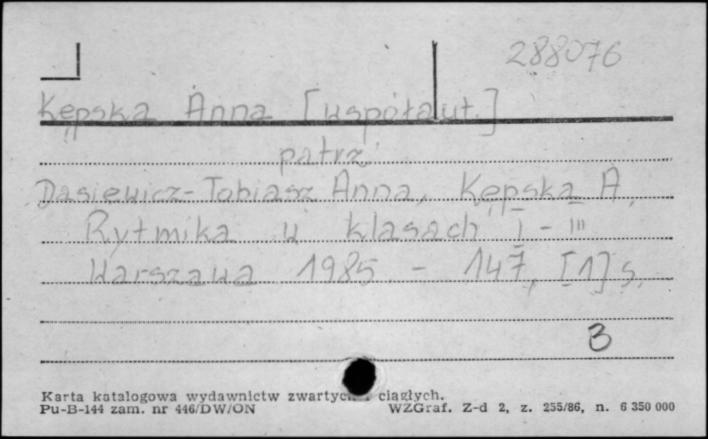 288076
Kępska Anna [współaut.]
patrz
Dasiewicz-Tobiasz Anna, Kępska A.
Rytmika w klasach I - III
Warszawa 1985 - 147, [1] s.
3
Karta katalogowa wydawnictw zwartych i ciągłych.
Pu-B-144 zam. nr 446/DW/ON WZGraf. Z-d 2, z. 255/86, n. 6 350 000